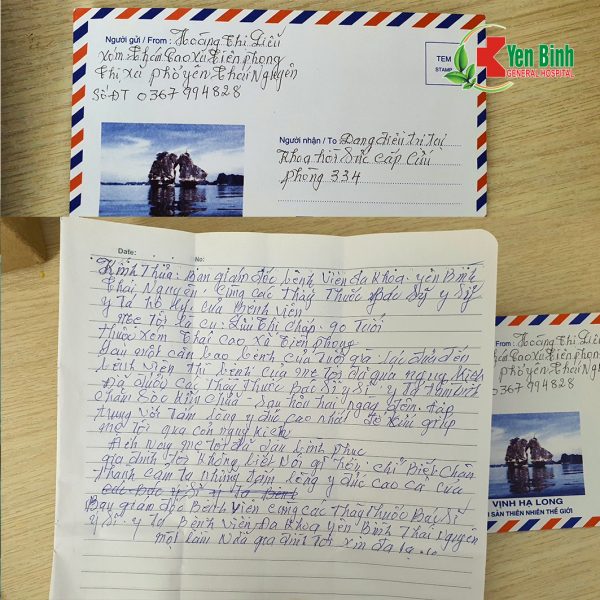 Yen Binh
GENERAL HOSPITAL
Người gửi / From : Hoàng Thị Liễu
Xóm Thái Cao Xã Tiên phong
Thị xã phổ yên Thái Nguyên
Số ĐT 0367 994828
TEM
STAMP
Người nhận / To Đang điều trị tại
Khoa hồi sức cấp cứu
phòng 334
Date:
No:
Kính Thưa: Ban giám đốc bệnh viện đa khoa. yên Bình
Thái Nguyên. cùng các Thầy Thuốc Bác Sỹ y Sỹ
y Tá hộ lý. của Bệnh viện
mẹ Tôi là cụ: Lưu Thị Chấp: 90 Tuổi
Thuộc xóm Thái Cao xã Tiên phong
Sau một cơn bạo bệnh của Tuổi già. lúc đưa đến
bệnh viện thì bệnh của mẹ tôi đã quá nguy kịch
Đã được các Thầy Thuốc Bác Sĩ y Sĩ. y Tá
Chăm Sóc Cứu Chữa - Sau hơn hai ngày đêm. tập
trung với Tấm lòng y đức cao nhất để cứu giúp
mẹ Tôi qua cơn nguy kiếm
Đến Nay mẹ tôi đã dần bình phục
gia đình tôi Không biết Nói gì hơn. chỉ Biết Chân
Thành cảm tạ những tấm lòng y đức cao cả của
các Bác Sĩ y Tá bệnh
Bay giám đốc Bệnh viện cùng các Thầy Thuốc Bác Sĩ
y Sĩ - y Tá Bệnh Viện Đa Khoa yên Bình Thái Nguyên
một lần Nữa gia đình Tôi xin đa tạ.
From : Hoàng Thị Liễu
Cao Xã Tiên phong
phổ yên Thái Nguyên
0367 994828
VỊNH HẠ LONG
SẢN THIÊN NHIÊN THẾ GIỚI